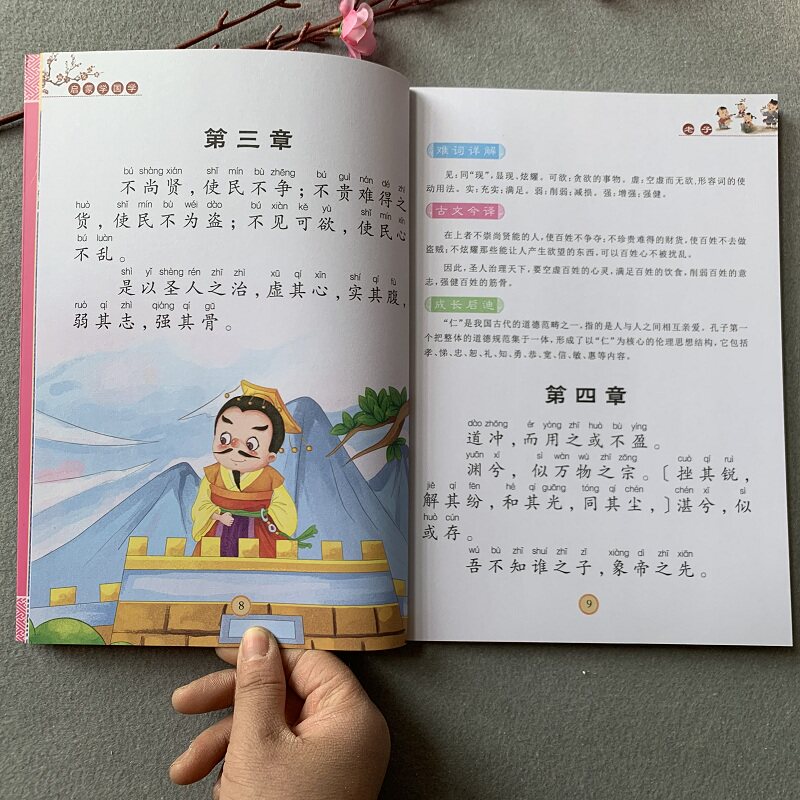 启蒙学国学
第三章
bú shàng xián shǐ mín bù zhēng bú guì nán dé zhī
不尚贤，使民不争；不贵难得之
huò shǐ mín bù wéi dào bú xiàn kě yù shǐ mín xīn
货，使民不为盗；不见可欲，使民心
bú luàn
不乱。
shì yǐ shèng rén zhī zhì xū qí xīn shí qí fù
是以圣人之治，虚其心，实其腹，
ruò qí zhì qiáng qí gǔ
弱其志，强其骨。
8
老子
难词详解
见：同“现”，显现、炫耀。可欲：贪欲的事物。虚：空虚而无欲，形容词的使
动用法。实：充实；满足。弱：削弱；减损。强：增强；强健。
古文今译
在上者不崇尚贤能的人，使百姓不争夺；不珍贵难得的财货，使百姓不去做
盗贼；不炫耀那些能让人产生欲望的东西，可以百姓心不被扰乱。
因此，圣人治理天下，要空虚百姓的心灵，满足百姓的饮食，削弱百姓的意
志，强健百姓的筋骨。
成长启迪
“仁”是我国古代的道德范畴之一，指的是人与人之间相互亲爱。孔子第一
个把整体的道德规范集于一体，形成了以“仁”为核心的伦理思想结构，它包括
孝、悌、忠、恕、礼、知、勇、恭、宽、信、敏、惠等内容。
第四章
dào chōng ér yòng zhī huò bù yíng
道冲，而用之或不盈。
yuān xī sì wàn wù zhī zōng cuò qí ruì
渊兮，似万物之宗。〔挫其锐，
jiě qí fēn hé qí guāng tóng qí chén chén xī sì
解其纷，和其光，同其尘，〕湛兮，似
huò cún
或存。
wú bù zhī shuí zhī zǐ xiàng dì zhī xiān
吾不知谁之子，象帝之先。
9